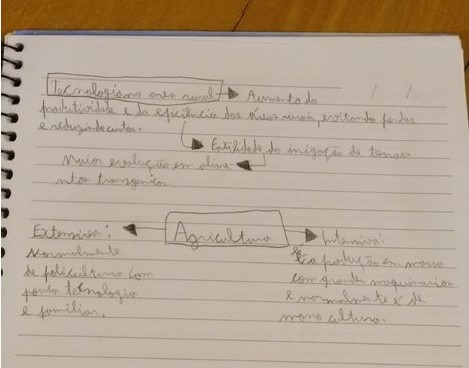 Tecnologia na area rural → Aumento da
produtividade e da eficiência das áreas rurais, evitando perdas
e reduzindo custos.
→ Fertilidade da irrigação de terras
Maior evolução em alime-
ntos transgenicos
Agricultura
Extensiva:
Normalmente
de policultura com
pouca tecnologia
e familiar.
Intensiva:
É a produção em massa
com grande maquinarios
e normalmente é de
monocultura.